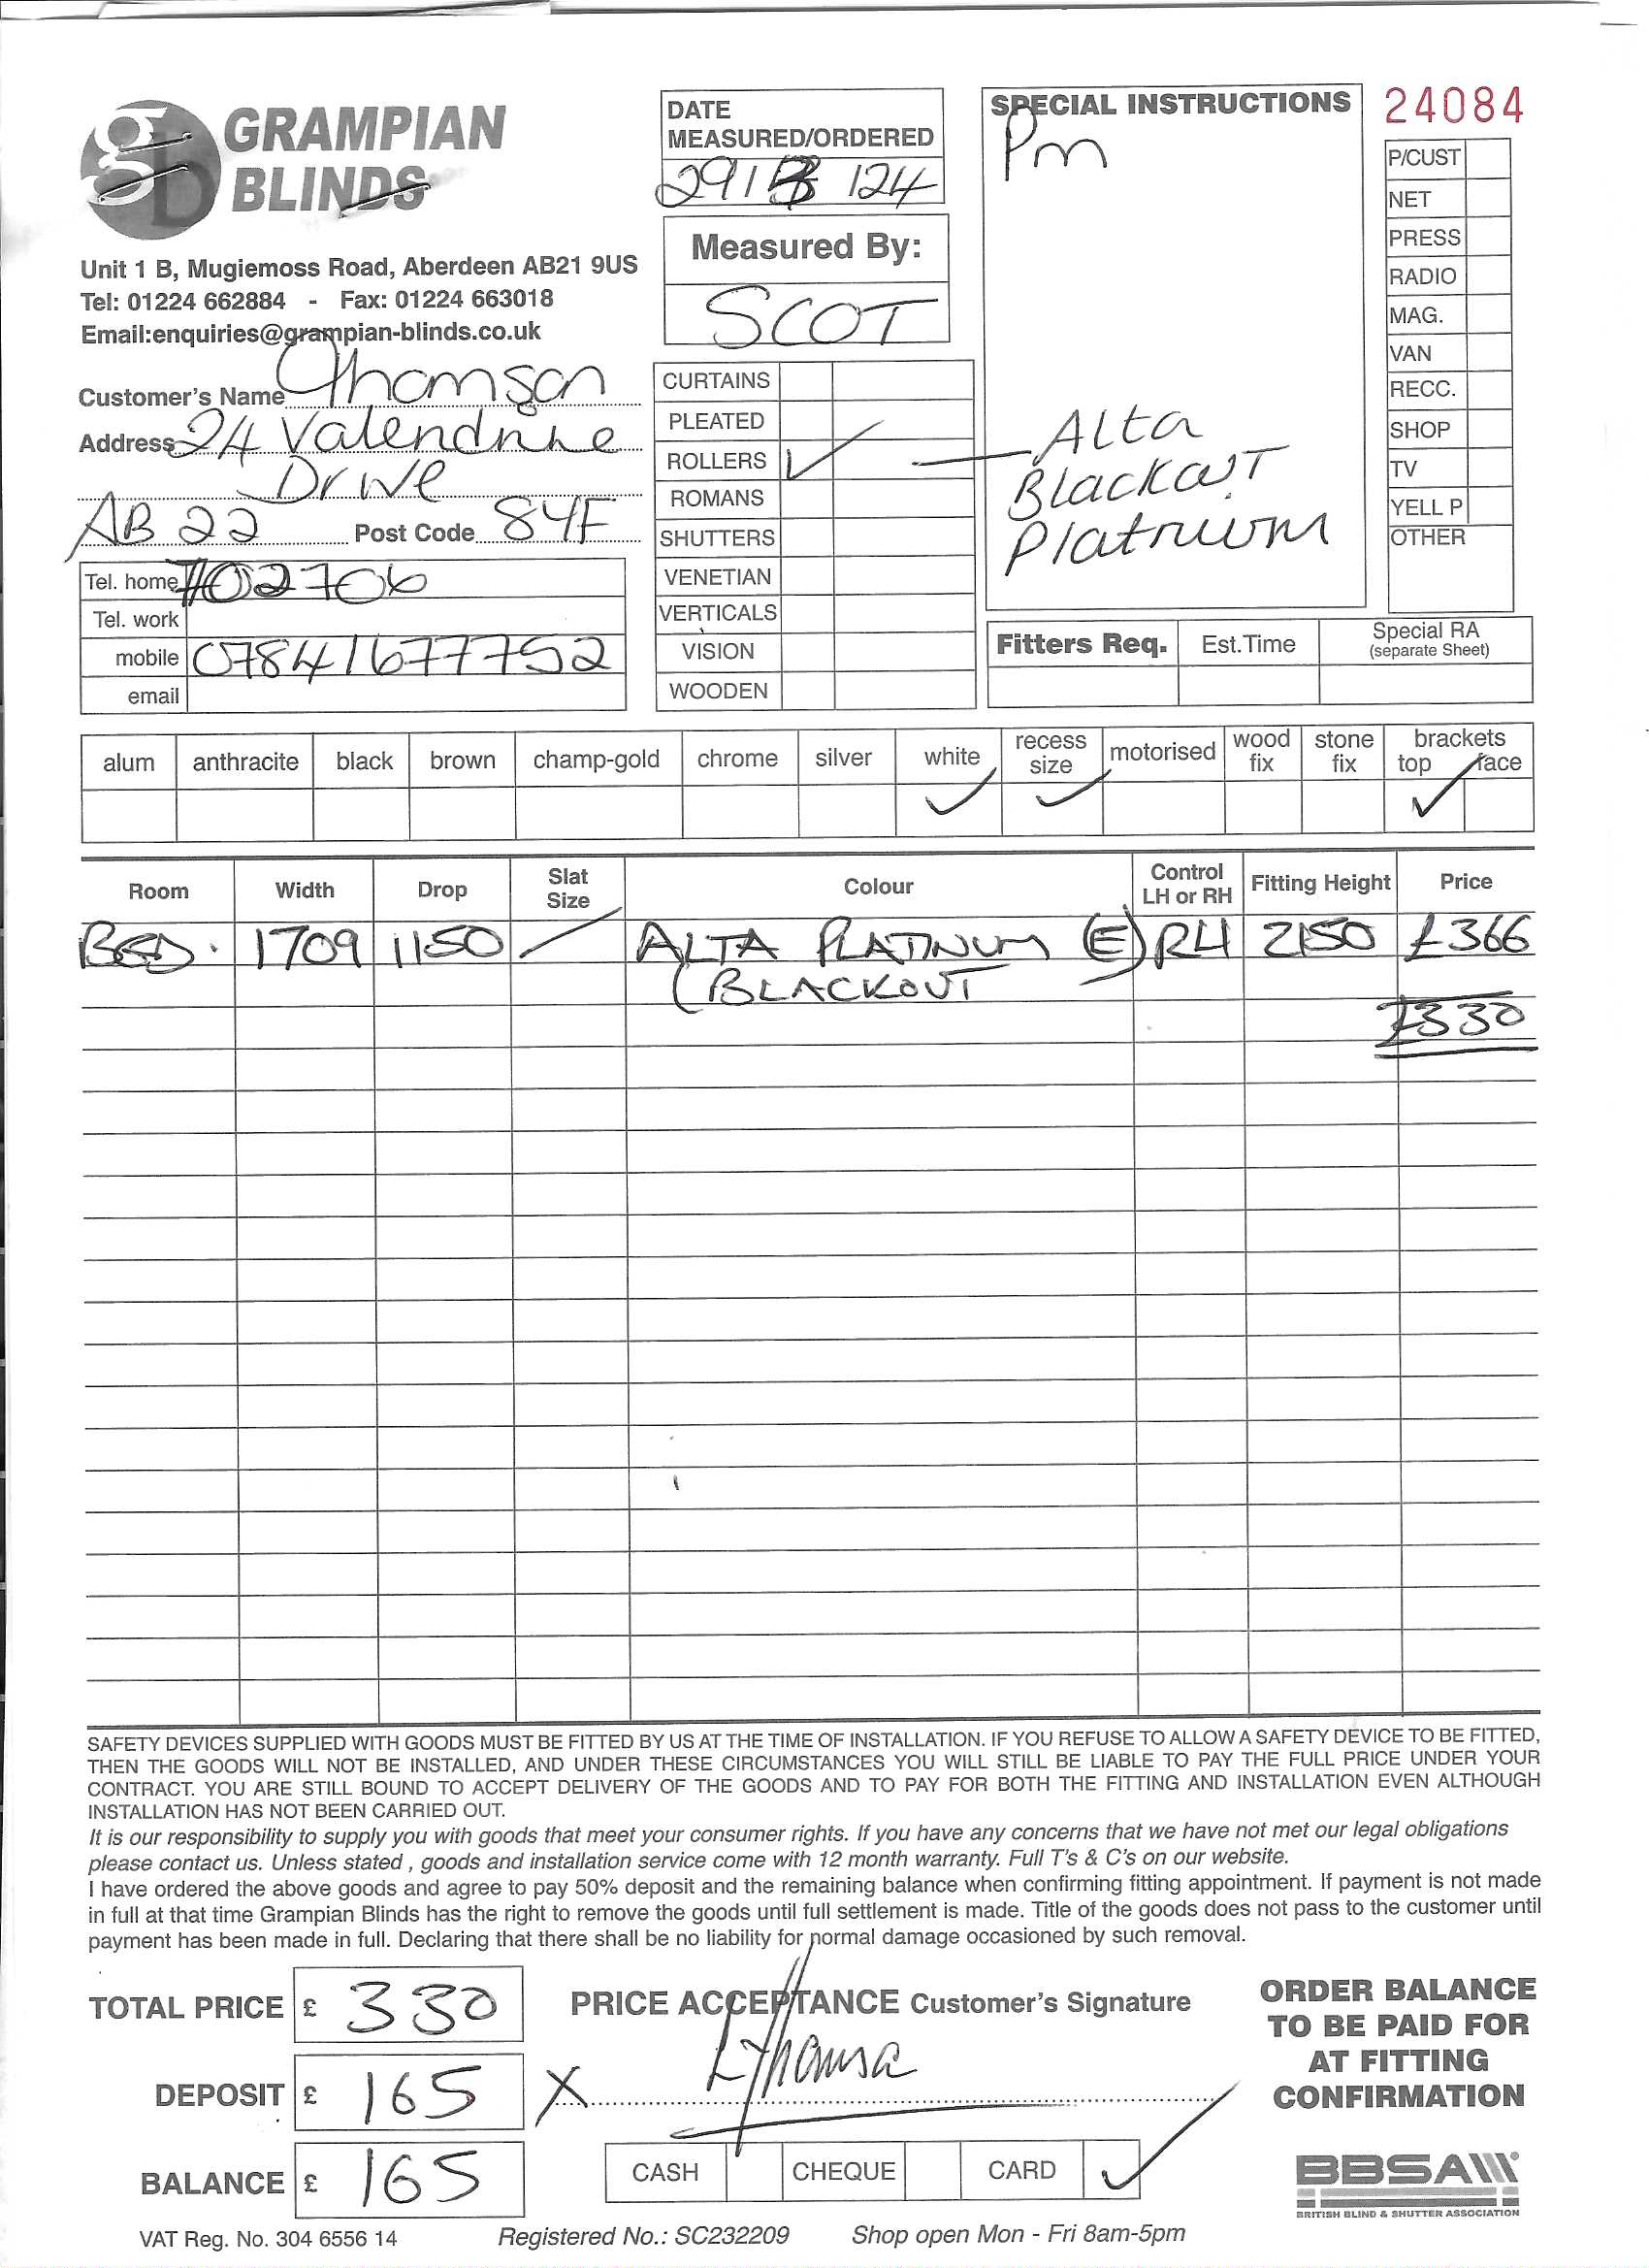 GRAMPIAN
BLINDS
Unit 1 B, Mugiemoss Road, Aberdeen AB21 9US
Tel: 01224 662884 - Fax: 01224 663018
Email:enquiries@grampian-blinds.co.uk
Customer's Name Thomson
Address 24
Drive
AB 22 Post Code 8YF
Tel. home 702706
Tel. work
mobile 07841677752
email
DATE
MEASURED/ORDERED
29/ /24
Measured By:
SCOT
CURTAINS
PLEATED
ROLLERS ✓
ROMANS
SHUTTERS
VENETIAN
VERTICALS
VISION
WOODEN
SPECIAL INSTRUCTIONS
Pm
Alta
Blackout
Platinum
24084
P/CUST
NET
PRESS
RADIO
MAG.
VAN
RECC.
SHOP
TV
YELL P
OTHER
Fitters Req. Est.Time Special RA
(separate Sheet)
alum anthracite black brown champ-gold chrome silver white recess size motorised wood fix stone fix brackets top face
✓ ✓ ✓
Room Width Drop Slat Size Colour Control LH or RH Fitting Height Price
BED. 1709 1150 / ALTA PLATINUM (E) RH 2150 £366
(BLACKOUT
£330
SAFETY DEVICES SUPPLIED WITH GOODS MUST BE FITTED BY US AT THE TIME OF INSTALLATION. IF YOU REFUSE TO ALLOW A SAFETY DEVICE TO BE FITTED,
THEN THE GOODS WILL NOT BE INSTALLED, AND UNDER THESE CIRCUMSTANCES YOU WILL STILL BE LIABLE TO PAY THE FULL PRICE UNDER YOUR
CONTRACT. YOU ARE STILL BOUND TO ACCEPT DELIVERY OF THE GOODS AND TO PAY FOR BOTH THE FITTING AND INSTALLATION EVEN ALTHOUGH
INSTALLATION HAS NOT BEEN CARRIED OUT.
It is our responsibility to supply you with goods that meet your consumer rights. If you have any concerns that we have not met our legal obligations
please contact us. Unless stated , goods and installation service come with 12 month warranty. Full T's & C's on our website.
I have ordered the above goods and agree to pay 50% deposit and the remaining balance when confirming fitting appointment. If payment is not made
in full at that time Grampian Blinds has the right to remove the goods until full settlement is made. Title of the goods does not pass to the customer until
payment has been made in full. Declaring that there shall be no liability for normal damage occasioned by such removal.
TOTAL PRICE £ 330
DEPOSIT £ 165
BALANCE £ 165
PRICE ACCEPTANCE Customer's Signature
X
CASH CHEQUE CARD ✓
ORDER BALANCE
TO BE PAID FOR
AT FITTING
CONFIRMATION
BBSA
BRITISH BLIND & SHUTTER ASSOCIATION
VAT Reg. No. 304 6556 14 Registered No.: SC232209 Shop open Mon - Fri 8am-5pm